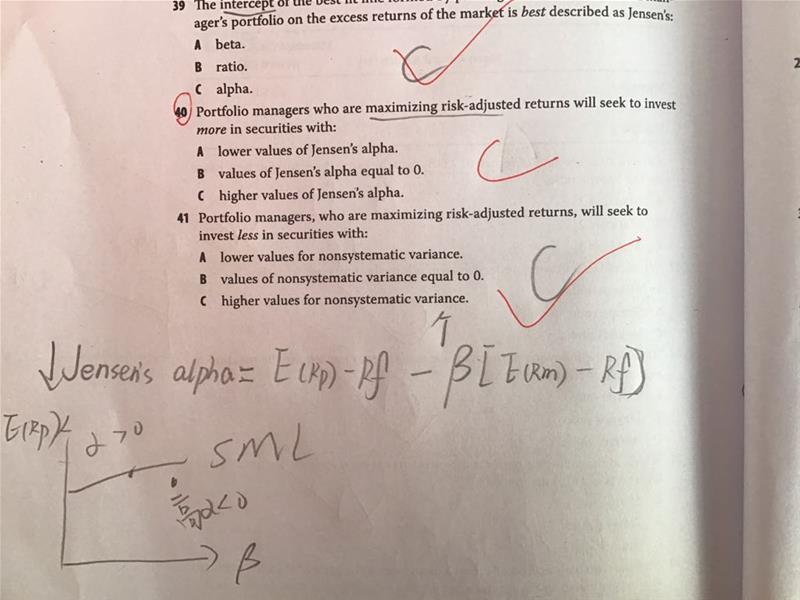 39 The intercept of the best fit line formed by
ager's portfolio on the excess returns of the market is best described as Jensen's:
A beta.
B ratio.
C alpha.
C
40 Portfolio managers who are maximizing risk-adjusted returns will seek to invest
more in securities with:
A lower values of Jensen's alpha.
B values of Jensen's alpha equal to 0.
C higher values of Jensen's alpha.
41 Portfolio managers, who are maximizing risk-adjusted returns, will seek to
invest less in securities with:
A lower values for nonsystematic variance.
B values of nonsystematic variance equal to 0.
C higher values for nonsystematic variance.
C
↓Jensen's alpha = E(Rp) - Rf - ↑β[E(Rm) - Rf]
E(Rp)
α>0
SML
α<0
β